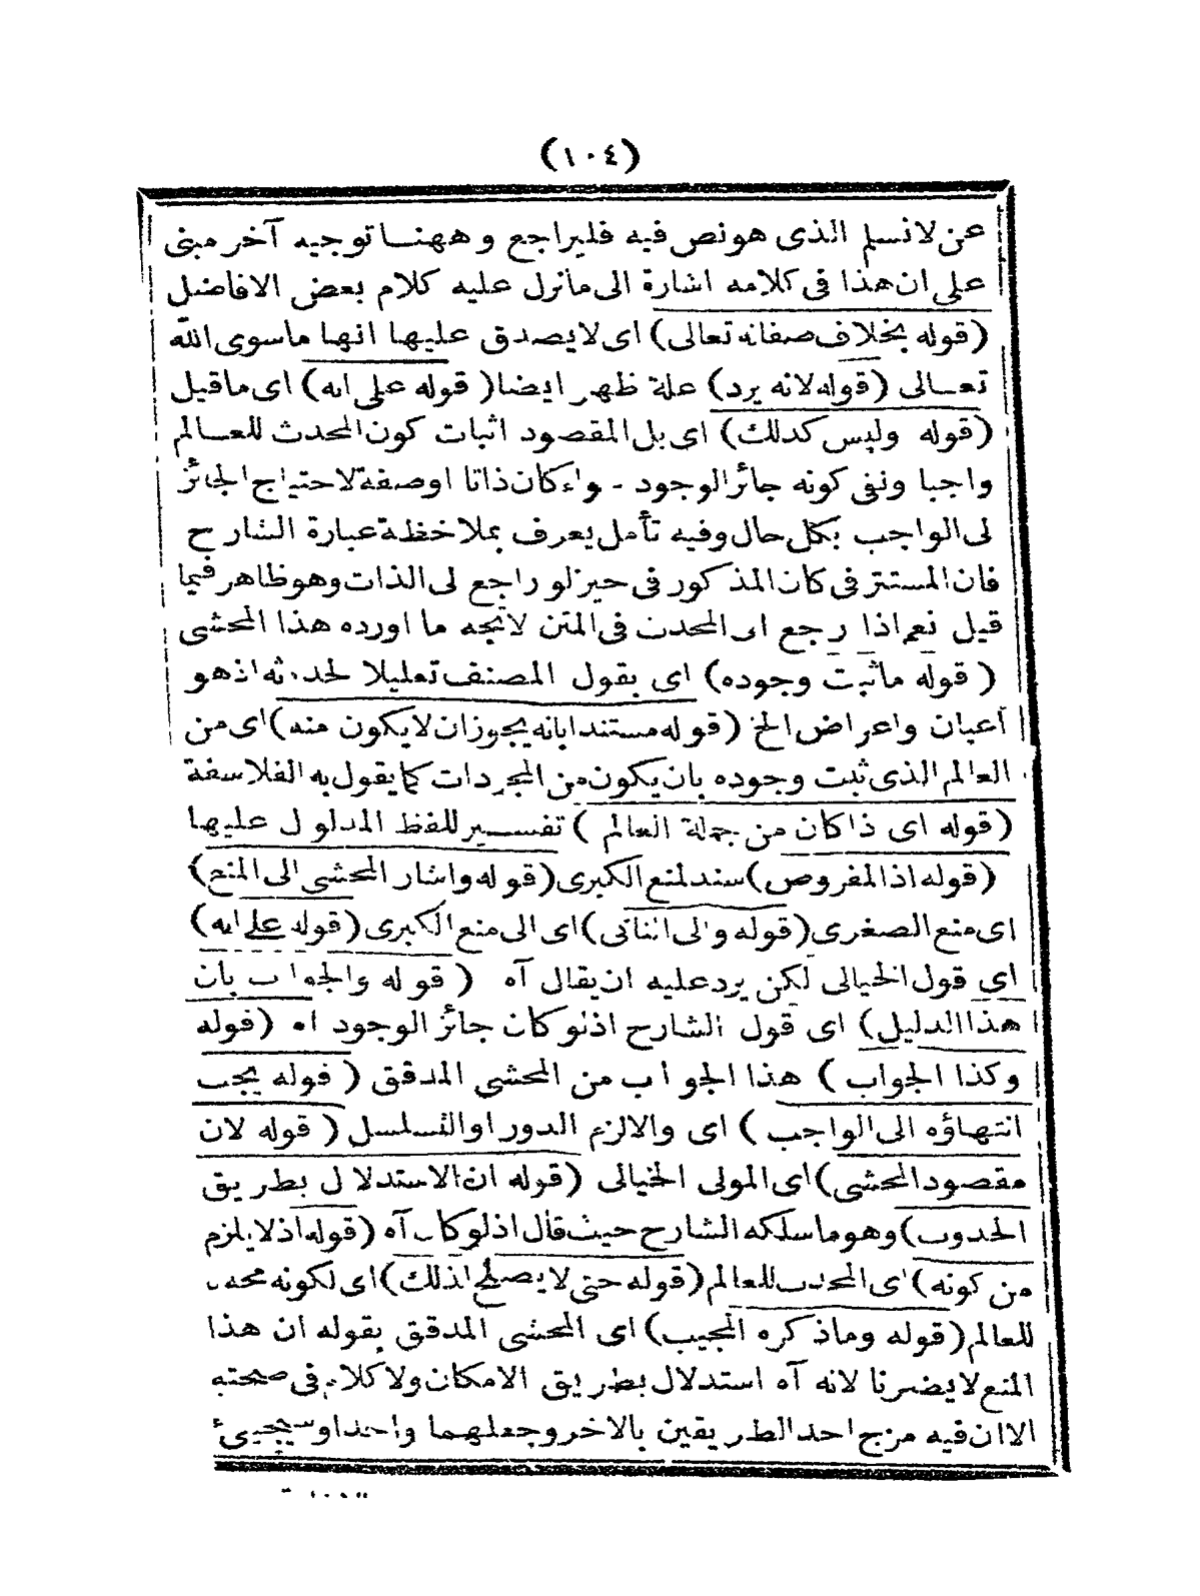 (١٠٤)
عن لانسلم الذى هونص فيه فليراجع وههنا توجيه آخر مبنى
على ان هذا فى كلامه اشارة الى مانزل عليه كلام بعض الافاضل
(قوله بخلاف صفاته تعالى) اى لايصدق عليها انها ماسوى الله
تعالى (قوله لانه يرد) علة ظهر ايضا (قوله على انه) اى ماقيل
(قوله وليس كذلك) اى بل المقصود اثبات كون المحدث للعالم
واجبا ونفى كونه جائز الوجود - واء كان ذاتا اوصفة لاحتياج الجائز
لى الواجب بكل حال وفيه تأمل يعرف بملاحظة عبارة الشارح
فان المستتر فى كان المذكور فى حيز لو راجع لى الذات وهوظاهر فيما
قيل نعم اذا رجع الى المحدث فى المتن لاتجه ما اورده هذا المحشى
(قوله ماثبت وجوده) اى بقول المصنف تعليلا لحدوثه اذهو
أعيان واعراض الخ (قوله مستندا بانه يجوز ان لايكون منه) اى من
العالم الذى ثبت وجوده بان يكون من المجردات كما يقول به الفلاسفة
(قوله اى ذا كان من جملة العالم) تفسير للفظ المدلول عليها
(قوله اذ المفروض) سند لمنع الكبرى (قوله واشار المحشى الى المنع)
اى منع الصغرى (قوله والى الثانى) اى الى منع الكبرى (قوله على انه)
اى قول الخيالى لكن يرد عليه ان يقال آه (قوله والجواب بان
هذا الدليل) اى قول الشارح اذلو كان جائز الوجود اه (قوله
وكذا الجواب) هذا الجواب من المحشى المدقق (قوله يجب
انتهاؤه الى الواجب) اى والالزم الدور اوالتسلسل (قوله لان
مقصود المحشى) اى المولى الخيالى (قوله ان الاستدلال بطريق
الحدوث) وهوماسلكه الشارح حيث قال اذلوكان آه (قوله اذ لايلزم
من كونه) اى المحدث للعالم (قوله حتى لايصلح لذلك) اى لكونه محد
للعالم (قوله وماذكره المجيب) اى المحشى المدقق بقوله ان هذا
المنع لايضرنا لانه آه استدلال بطريق الامكان ولاكلام فى صحته
الاان فيه مزج احد الطريقين بالاخر وجعلهما واحدا وسيجيئ